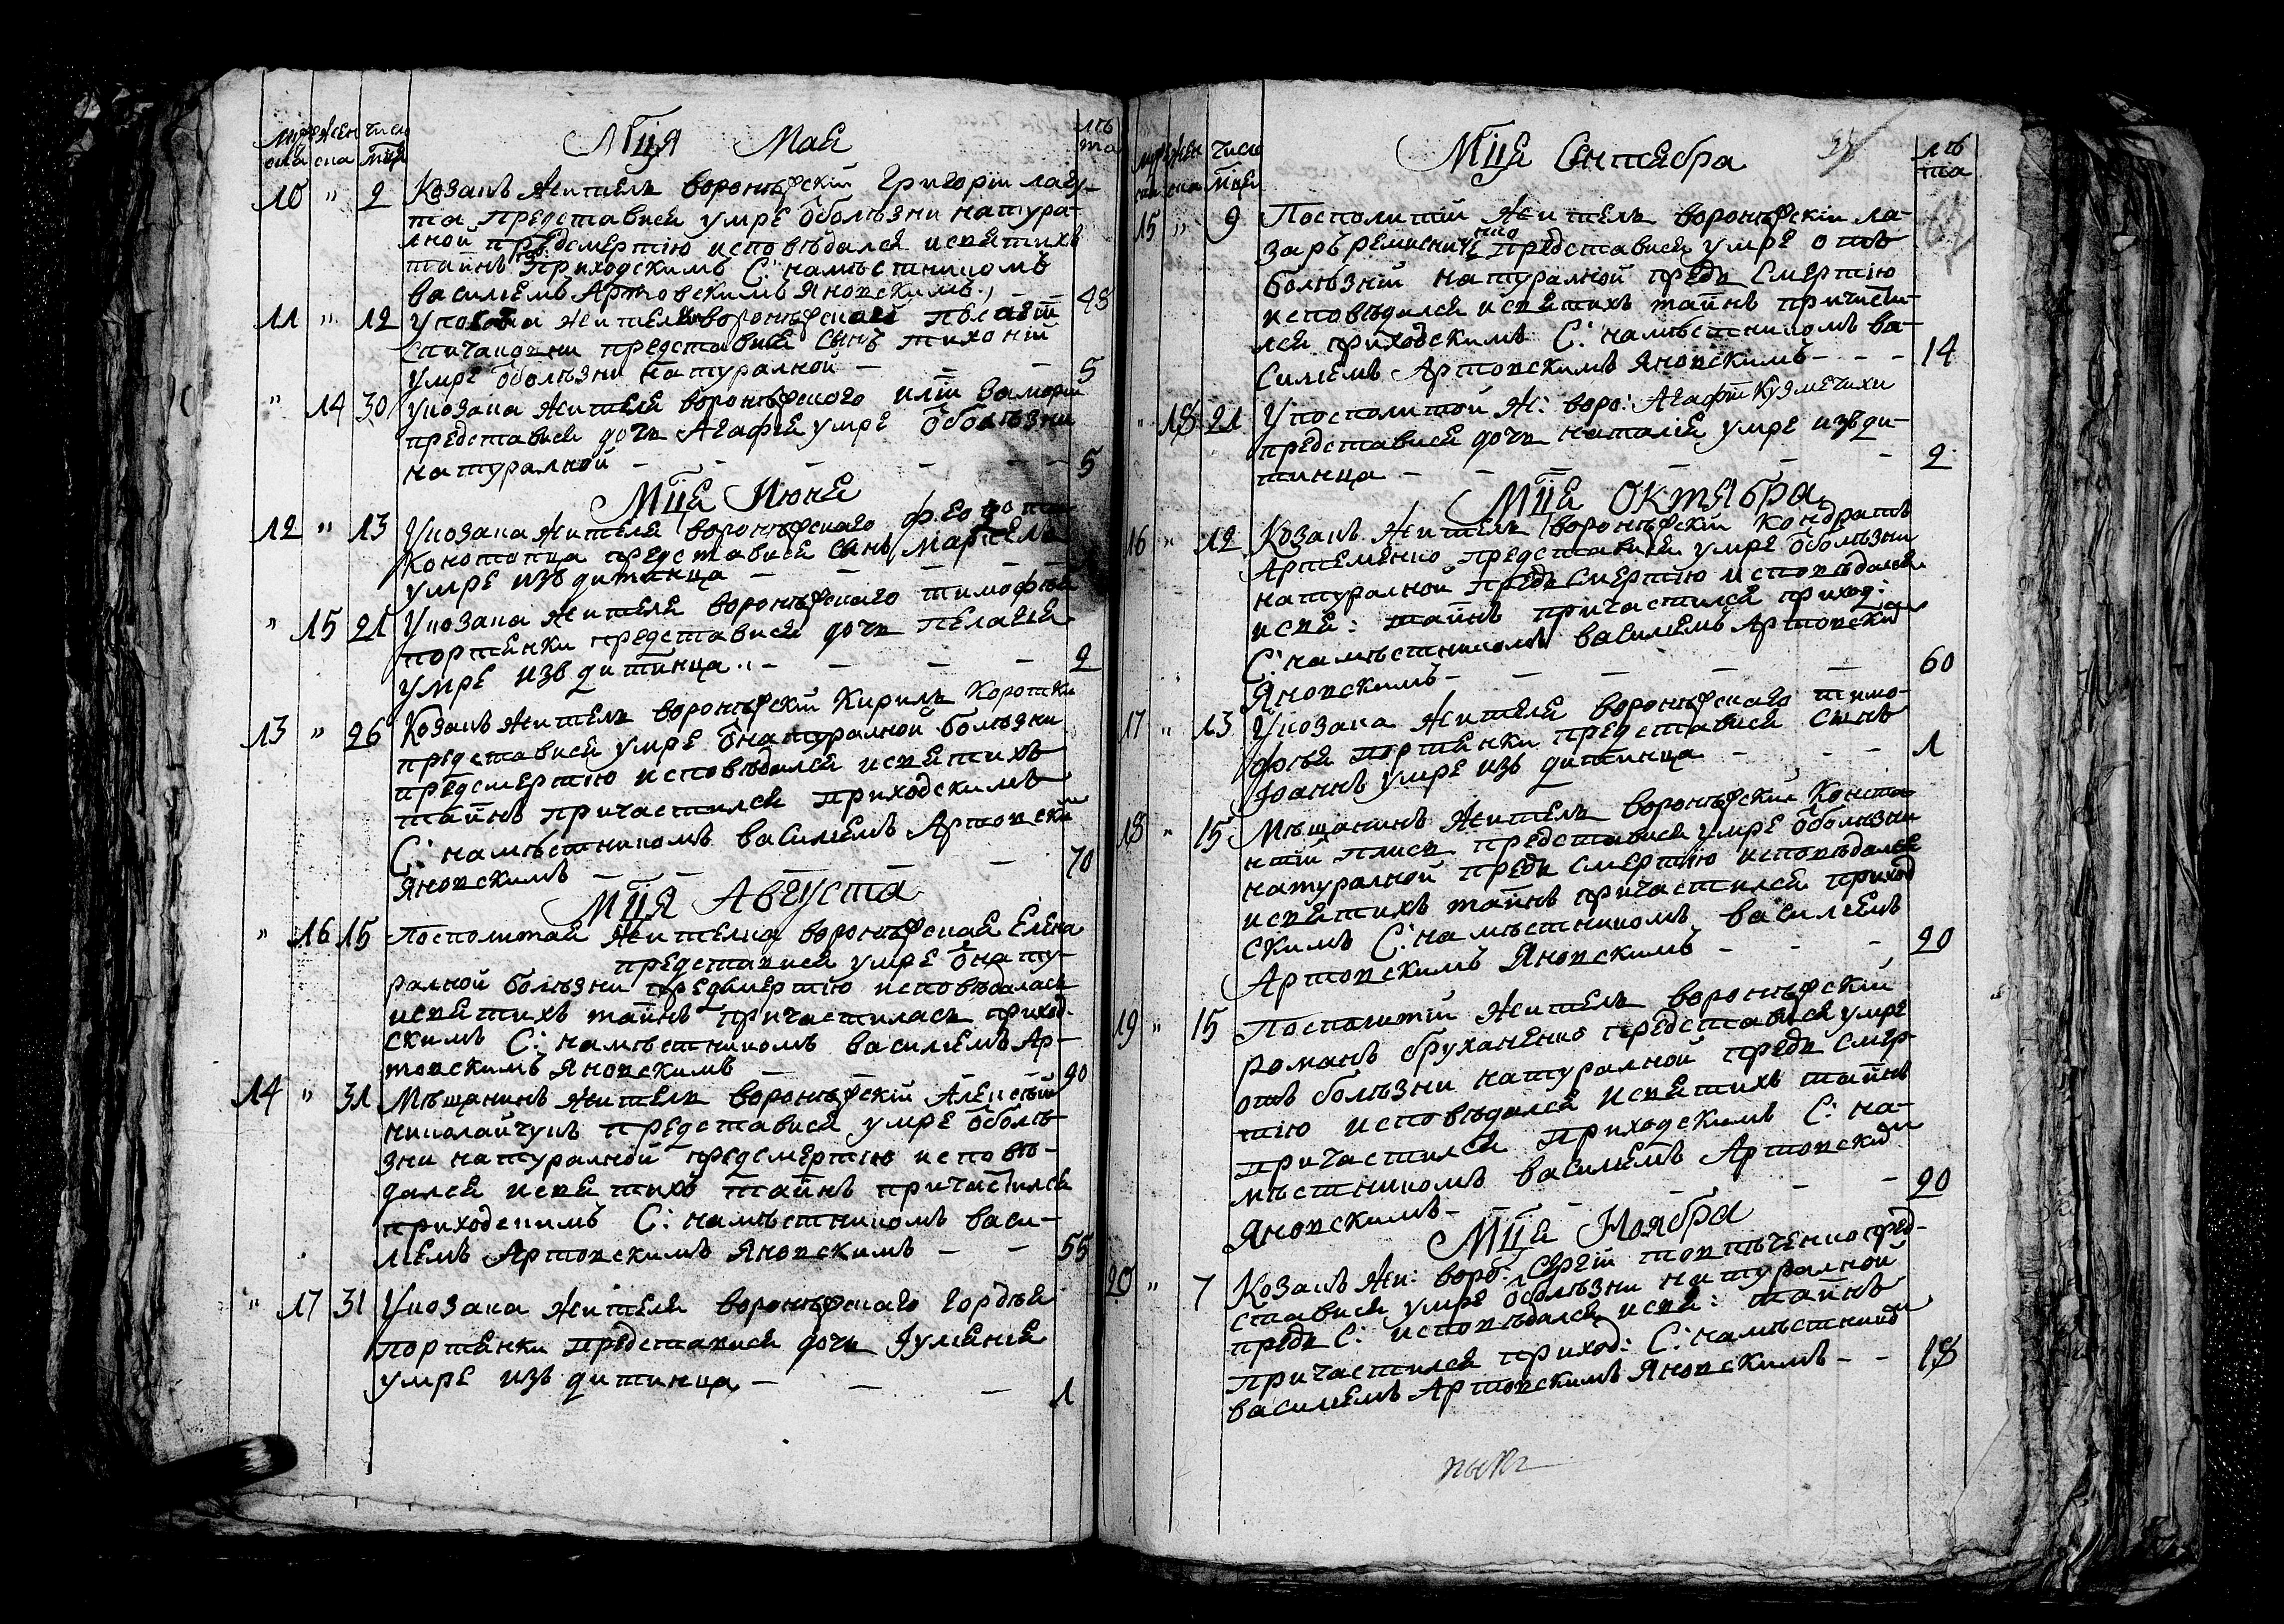 муже жен число Мця Мая лѣ
ска ска мця та
10 " 2 Козакъ житель воронѣжскій Григорій лагу-
та представися умре ѿболѣзни натура-
лной предсмертію исповѣдался исвятихъ
тайнъ приходскимъ С: намѣстникомъ
василіемъ Артовскимъ Яновскимъ 48
11 " 12 Укозака жителя воронѣжскаго
представися сынъ тихоній
умре ѿболѣзни натуралной — — 5
" 14 30 Укозака жителя воронѣжского
представися дочь Агафія умре ѿболѣзни
натуралной — — — — — 5
Мця Июня
12 " 13 Укозака жителя воронѣжскаго федота
Конотопца представися сынъ
умре изъ дитинца — — — —
" 15 21 Укозака жителя воронѣжскаго тимофѣя
портянки представися дочь пелагея
умре изъ дитинца — — — — 2
13 " 26 Козакъ житель воронѣжскій Кирилъ Коротки
представися умре ѿнатуралной болѣзни
предсмертію исповѣдался исвятихъ
тайнъ причастился приходскимъ
С: намѣстникомъ василіемъ Артовски
Яновскимъ — — — — 70
Мця Августа
" 16 15 Посполитая жителка воронѣжская Елена
представися умре ѿнату-
ралной болѣзни предсмертію исповѣдалась
исвятихъ тайнъ причастилась приход-
скимъ С: намѣстникомъ василіемъ Ар-
товскимъ Яновскимъ — — 90
14 " 31 Мѣщанинъ житель воронѣжскій Алексѣй
николайчукъ представися умре ѿболѣ-
зни натуралной предсмертію исповѣ-
дался исвятихъ тайнъ причастился
приходскимъ С: намѣстникомъ васи-
лемъ Артовскимъ Яновскимъ — — 55
" 17 31 Укозака жителя воронѣжскаго гордѣя
портянки представися дочь Іуліанія
умре изъ дитинца — — — 1
муж жен число Мця Сентября лѣ
ска ска мцей та
15 " 9 Посполитій житель воронѣжскій ла-
заръ представися умре отъ
болѣзній натуралной предъ смертію
исповѣдался исвятихъ тайнъ причасти-
лся приходскимъ С: намѣстникомъ ва-
силіемъ Артовскимъ Яновскимъ - - - 14
" 18 21 Упосполитой ж: воро: Агафіи Кузмечихи
представися дочь наталія умре изъ ди-
тинца — — — — 2
Мця Октября
16 " 12 Козакъ житель воронѣжскій Кондратъ
Артеменко представися умре ѿболѣзни
натуралной предъ смертію исповѣдался
исвя: тайнъ причастился приход:
С: намѣстникомъ василіемъ Артовски
Яновскимъ — — — — 60
17 " 13 Укозака жителя воронѣжскаго тимо-
фѣя портянки представися сынъ
Іоаннъ умре изъ дитинца — — — 1
18 " 15 Мѣщанинъ житель воронѣжскій Конста-
нтій представися умре ѿболѣзни
натуралной предъ смертію исповѣдался
исвятихъ тайнъ причастился приход
скимъ С: намѣстникомъ василіемъ
Артовскимъ Яновскимъ — — — 20
19 " 15 Посполитій житель воронѣжскій
романъ бруханенко представися умре
отъ болѣзни натуралной предъ смер-
тію исповѣдался исвятихъ тайнъ
причастился приходскимъ С: на-
мѣстникомъ василіемъ Артовски
Яновскимъ — — — — 20
Мця Ноября
20 " 7 Козакъ жи: воро: Сергій пред-
ставися умре ѿболѣзни натуралной
предъ С: исповѣдался исвя: тайнъ
причастился приход: С: намѣстникомъ
василіемъ Артовскимъ Яновскимъ — — 18